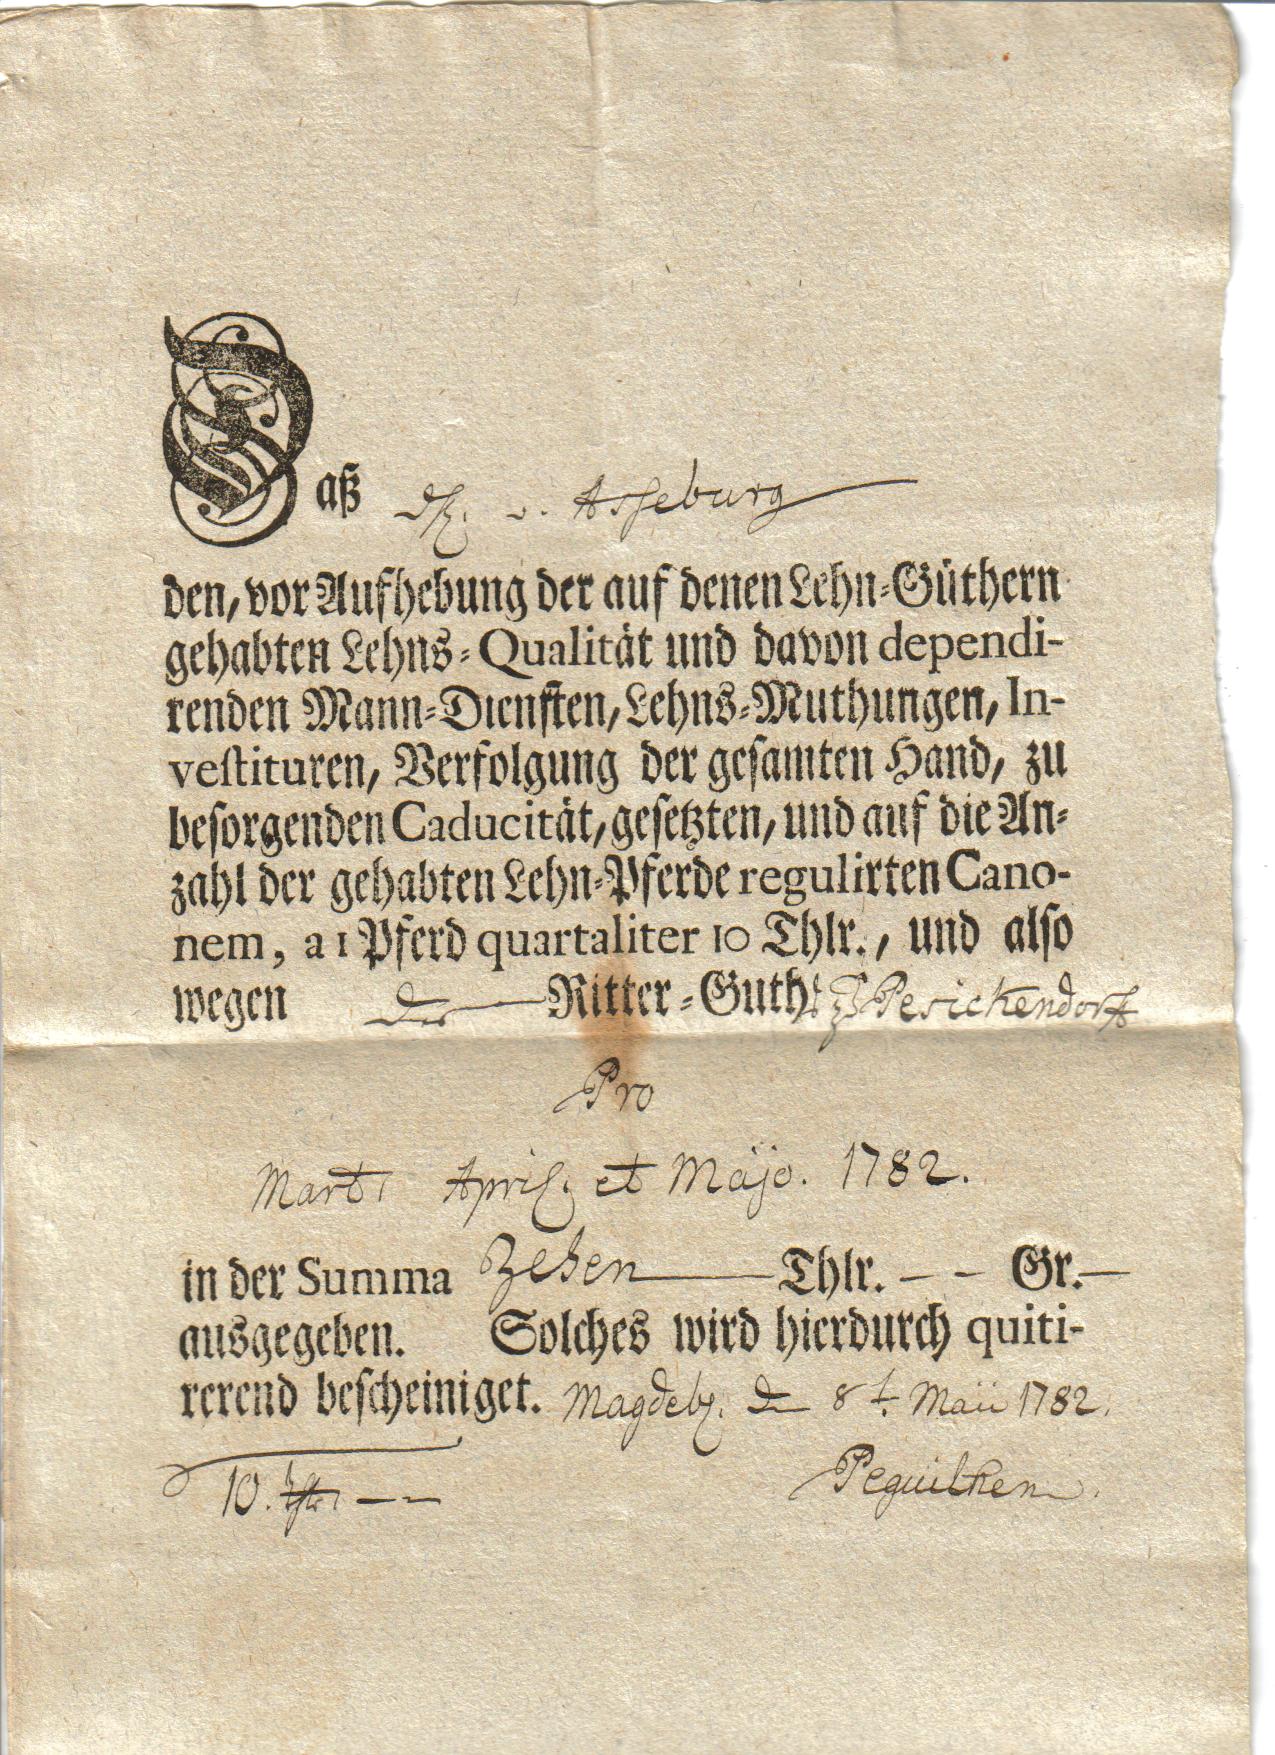 Daß H. v. Asseburg
den, vor Aufhebung der auf denen Lehn-Güthern
gehabten Lehns-Qualität und davon dependi-
renden Mann-Diensten, Lehns-Muthungen, In-
veſtituren, Verfolgung der gesamten Hand, zu
besorgenden Caducität, gesetzten, und auf die An-
zahl der gehabten Lehn-Pferde regulirten Cano-
nem, a 1 Pferd quartaliter 10 Thlr., und also
wegen des Ritter-Guths Pesickendorff
Pro
Mart. April. et Majo. 1782.
in der Summa Zehen Thlr. - - Gr.
ausgegeben. Solches wird hierdurch quiti-
rerend bescheiniget. Magdebg. d 8t. Maii 1782.
10. Thlr. — —
Peguilhen.